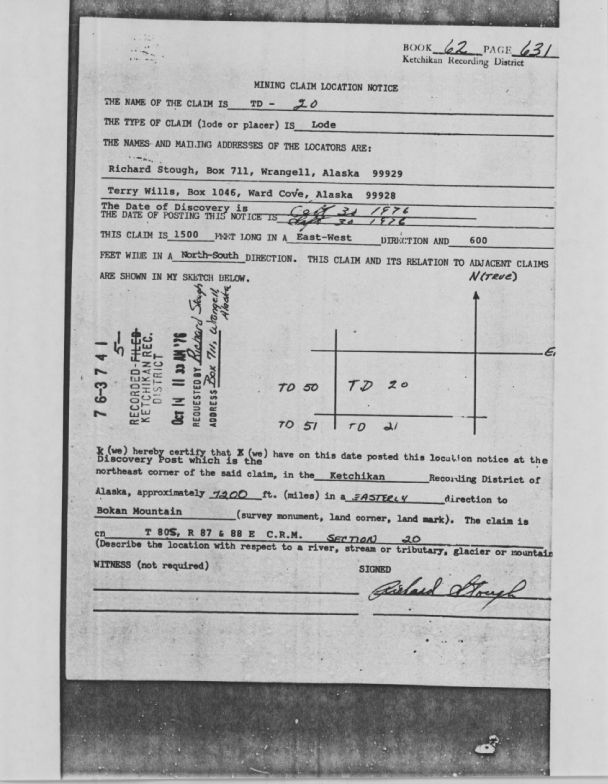 BOOK 62 PAGE 631
Ketchikan Recording District
MINING CLAIM LOCATION NOTICE
THE NAME OF THE CLAIM IS TD - 20
THE TYPE OF CLAIM (lode or placer) IS Lode
THE NAMES AND MAILING ADDRESSES OF THE LOCATORS ARE:
Richard Stough, Box 711, Wrangell, Alaska 99929
Terry Wills, Box 1046, Ward Cove, Alaska 99928
The Date of Discovery is 30 1976
THE DATE OF POSTING THIS NOTICE IS Sept 30 1976
THIS CLAIM IS 1500 FEET LONG IN A East-West DIRECTION AND 600
FEET WIDE IN A North-South DIRECTION. THIS CLAIM AND ITS RELATION TO ADJACENT CLAIMS
ARE SHOWN IN MY SKETCH BELOW.
N (TRUE)
E
76-3741
5—
RECORDED-FILED
KETCHIKAN REC.
DISTRICT
OCT 14 11 33 AM '76
REQUESTED BY Richard Stough
ADDRESS Box 711, Wrangell
Alaska
TD 50 TD 20
TD 51 TD 21
I (we) hereby certify that I (we) have on this date posted this location notice at the
Discovery Post which is the
northeast corner of the said claim, in the Ketchikan Recording District of
Alaska, approximately 7200 ft. (miles) in a EASTERLY direction to
Bokan Mountain (survey monument, land corner, land mark). The claim is
on T 80S, R 87 & 88 E C.R.M. SECTION 20
(Describe the location with respect to a river, stream or tributary, glacier or mountain
WITNESS (not required) SIGNED
Richard Stough